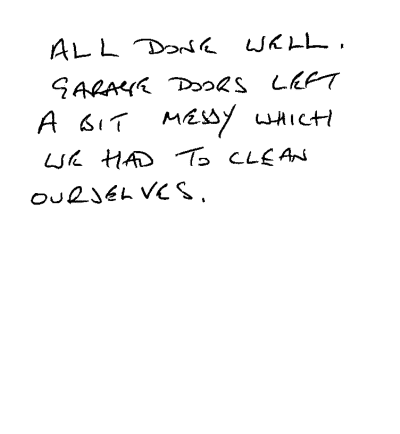 ALL DONE WELL.
GARAGE DOORS LEFT
A BIT MESSY WHICH
WE HAD TO CLEAN
OURSELVES.